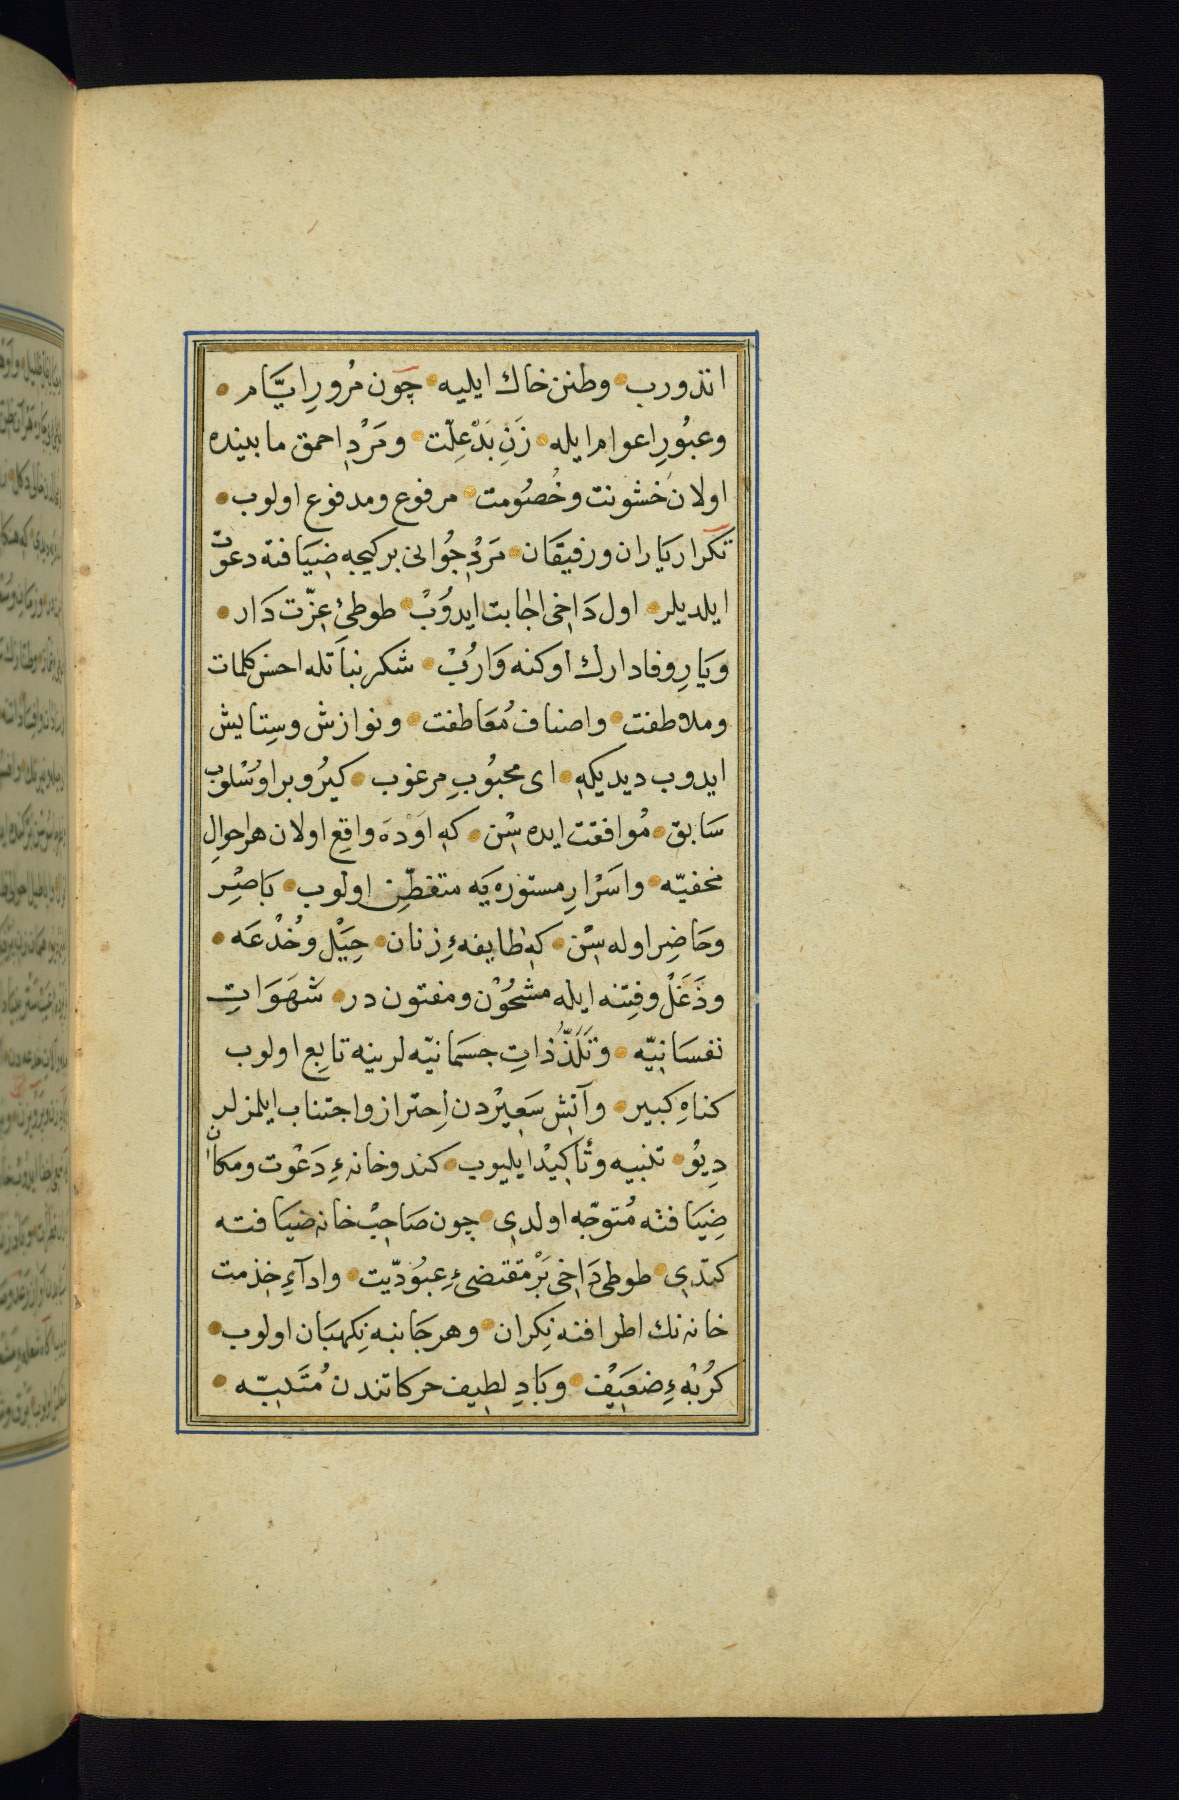 اندورب وطنن خاك ايليه چون مُرورِ ايّام
وعبُورِ اعوام ايله زَنِ بَدْ عِلّت ومَرْدِ احمق مابينده
اولان خشونت وخُصُومت مرفوع ومدفوع اولوب
تكرار يَاران ورفيقَان مَرْدِ جُوانى بر كيجه ضِيَافته دعوت
ايلديلر اول دَاخى اجابت ايدوُبْ طوطئ عِزّت دَار
ويَارِ وفادارك اوكنه وَارُبْ شكر نباتله احسن كلمات
وملاطفت واصناف مُعَاطفت ونوازش وسِتايش
ايدوب ديديكه اى محبُوبِ مرغوب كيرُو بر اوسْلوب
سَابق مُوافقت ايده سْن كه اوْدَه واقِع اولان هر احوالِ
مخفيّه واسَرْارِ مستوره يَه متفطّن اولوب بَاصِرْ
وحَاضِر اوله سْن كه طايفهءِ زنان حِيَلْ وخُدْعَه
ودَغَلْ وفِتنه ايله مشحُوْن ومفتون در شَهَوَاتِ
نفسَانِيّه وتَلَذُّذاتِ جسمَانيّه لرينه تابِع اولوب
كناهِ كبير وآتش سَعِيرْدن اِحتراز واجتناب ايلمزلر
دِيوُ تنبيه وتَأكِيدْ ايليوب كندو خانهءِ دَعْوت ومكان
ضِيَافته مُتوجّه اولدى چون صَاحِبْ خانه ضيَافته
كتدى طوطى دَاخى بَرْ مقتضىءِ عبُوديّت وادآءِ خِذمت
خانه نك اطرافنه نِكران وهر جَانبه نِكهبَان اولوب
كُرْبهءِ ضعَيِفْ وبَادِ لطيف حركاتندن مُتَنبّه